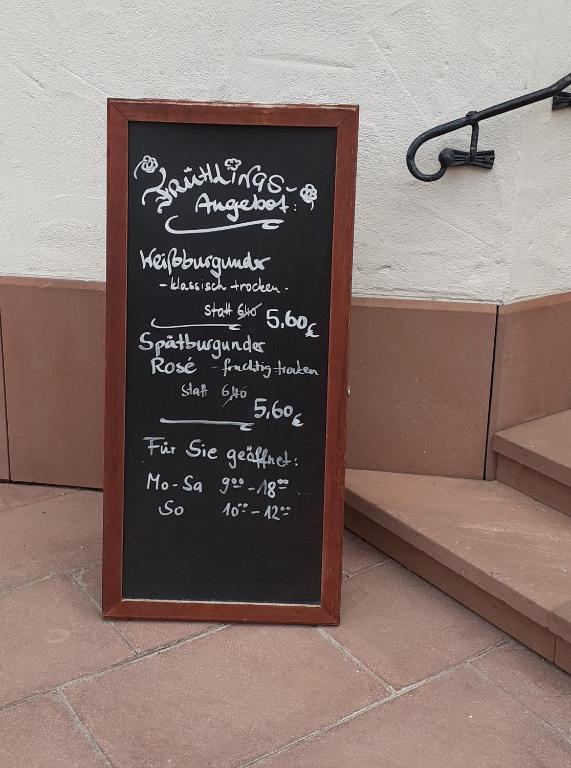 FRÜHLINGS-
Angebot:
Weißburgunder
- klassisch trocken -
statt 6,40 5,60 €
Spätburgunder
Rosé - fruchtig-trocken
statt 6,40
5,60 €
Für Sie geöffnet:
Mo-Sa 9⁰⁰-18⁰⁰
So 10⁰⁰-12⁰⁰